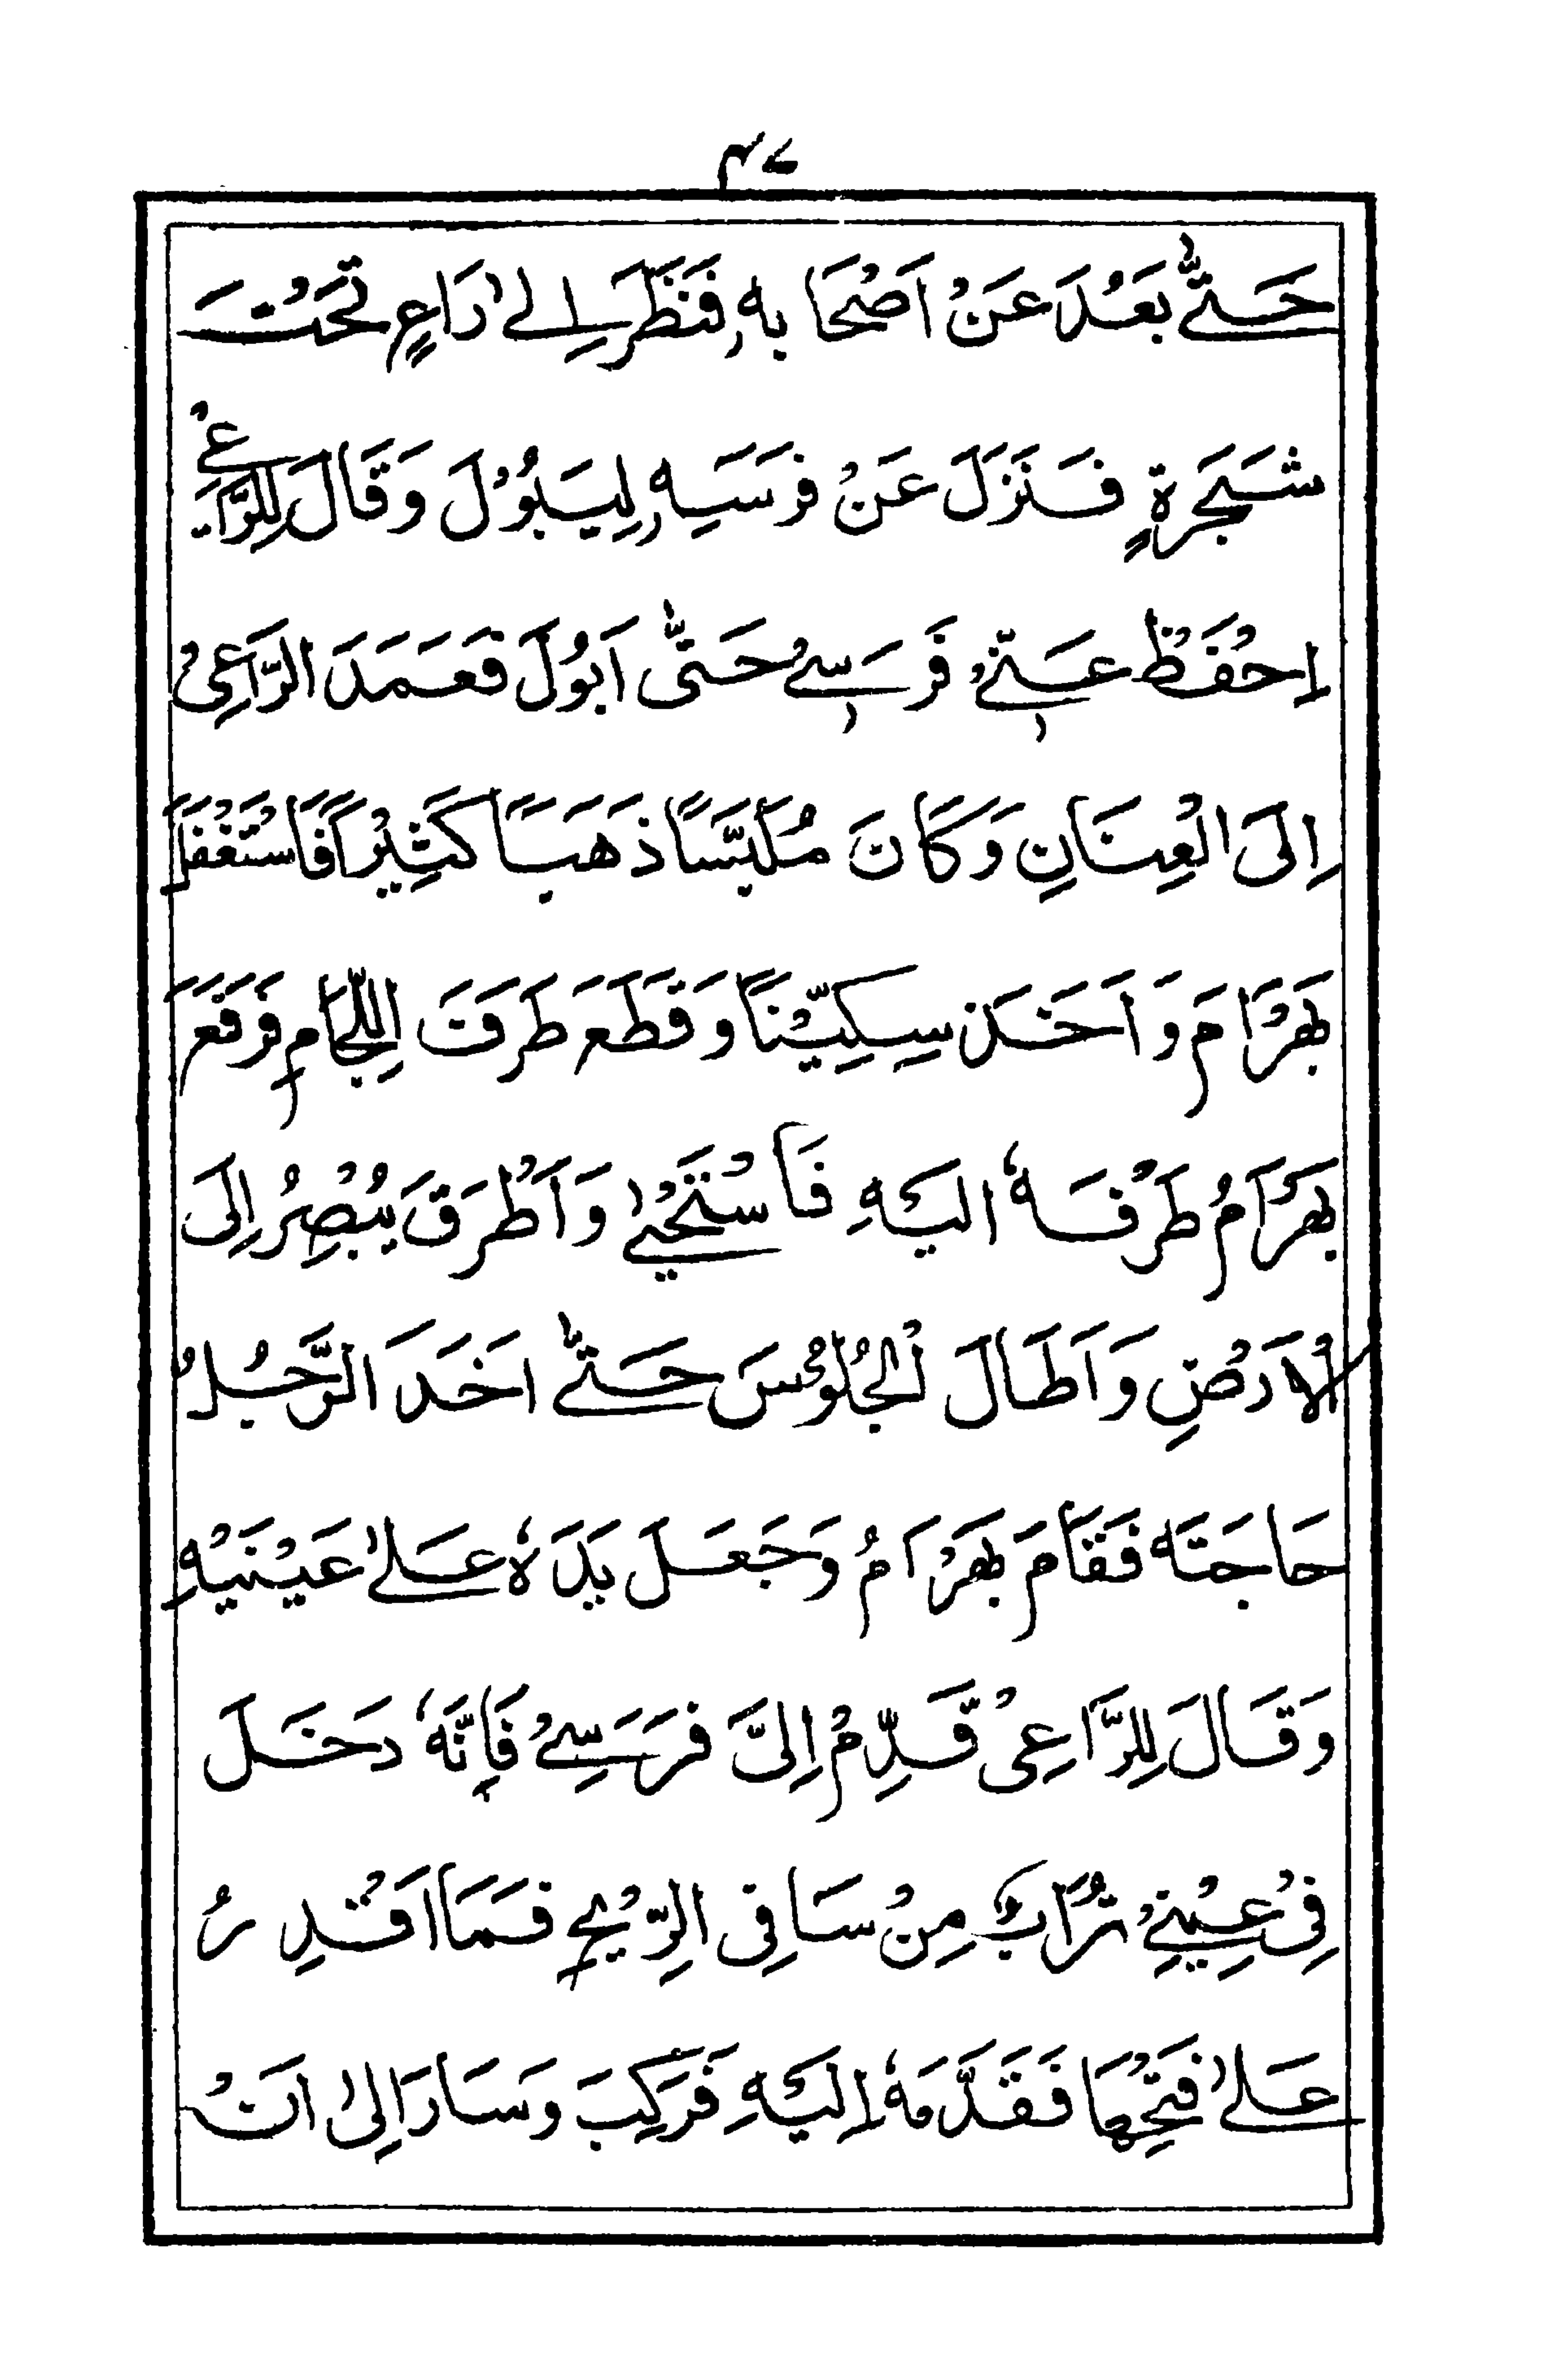 ۴۷
حَتّٰى بَعُدَ عَنْ اَصْحَابِهٖ فَنَظَرَ اِلٰى رَاعٍ تَحْتَ
شَجَرَةٍ فَنَزَلَ عَنْ فَرَسَيِهٖ لِيَبُوْلَ وَقَالَ لِلرَّاعِيْ
اِحْفَظْ عَنِّيْ فَرَسِيْ حَتّٰى اَبُوْلَ فَعَمَدَ الرَّاعِىْ
اِلَى الْعِنَانِ وَكَانَ مُلَبَّسًا ذَهَبًا كَثِيْرًا فَاسْتَغْفَلَ
بَهْرَامَ وَاَخَذَ سِكِّيْنًا وَقَطَعَ طَرَفَ اللِّجَامِ فَرَفَعَ
بَهْرَامُ طَرْفَهٗ اِلَيْهِ فَاسْتَحْيٰى وَاَطْرَقَ يُبْصِرُ اِلَى
الْاَرْضِ وَاَطَالَ الْجُلُوْسَ حَتّٰى اَخَذَ الرَّجُلُ
حَاجَتَهٗ فَقَامَ بَهْرَامُ وَجَعَلَ يَدَهٗ عَلٰى عَيْنَيْهِ
وَقَالَ لِلرَّاعِىْ قَدِّمْ اِلَىَّ فَرَسِىْ فَاِنَّهٗ دَخَلَ
فِىْ عَيْنِىْ تُرَابٌ مِنْ سَافِى الرِّيْحِ فَمَا اَقْدِرُ
عَلٰى فَتْحِهَا فَقَدَّمَهٗ اِلَيْهِ فَرَكِبَ وَسَارَ اِلٰى اَنْ